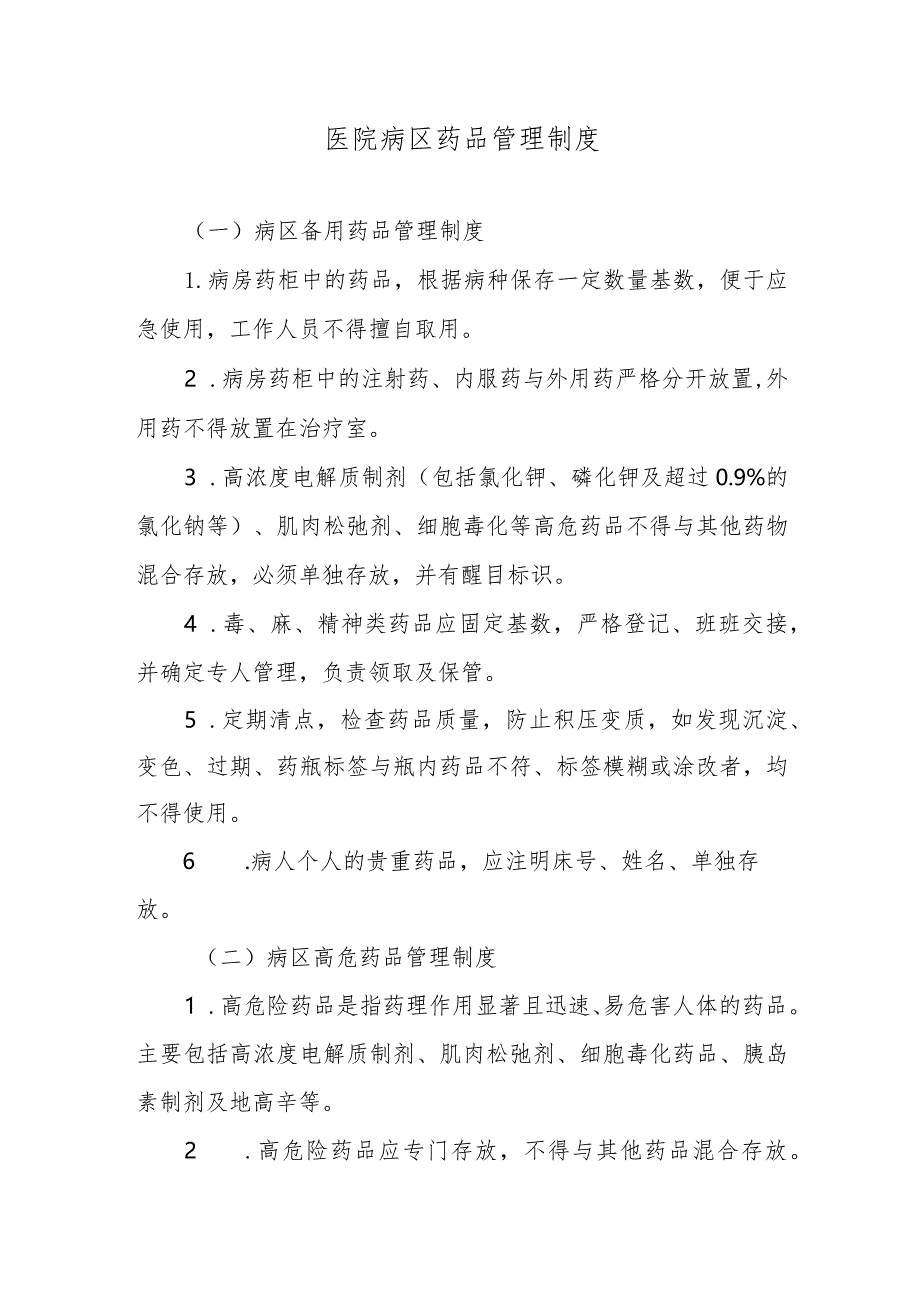 医院病区药品管理制度
（一）病区备用药品管理制度
1. 病房药柜中的药品，根据病种保存一定数量基数，便于应
急使用，工作人员不得擅自取用。
2 . 病房药柜中的注射药、内服药与外用药严格分开放置,外
用药不得放置在治疗室。
3 . 高浓度电解质制剂（包括氯化钾、磷化钾及超过 0.9%的
氯化钠等）、肌肉松弛剂、细胞毒化等高危药品不得与其他药物
混合存放，必须单独存放，并有醒目标识。
4 . 毒、麻、精神类药品应固定基数，严格登记、班班交接，
并确定专人管理，负责领取及保管。
5 . 定期清点，检查药品质量，防止积压变质，如发现沉淀、
变色、过期、药瓶标签与瓶内药品不符、标签模糊或涂改者，均
不得使用。
6 .病人个人的贵重药品，应注明床号、姓名、单独存
放。
（二）病区高危药品管理制度
1 . 高危险药品是指药理作用显著且迅速、易危害人体的药品。
主要包括高浓度电解质制剂、肌肉松弛剂、细胞毒化药品、胰岛
素制剂及地高辛等。
2 . 高危险药品应专门存放，不得与其他药品混合存放。